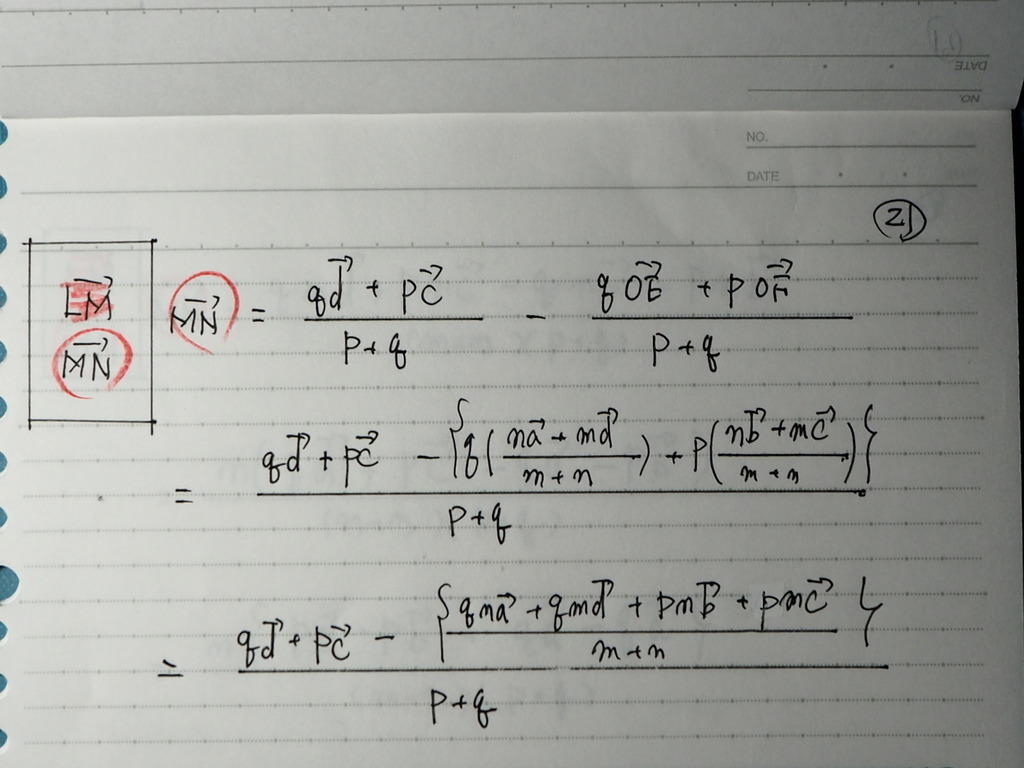 (1)
DATE
NO.
NO.
DATE
21
\overrightarrow{LM}
\overrightarrow{MN}
\overrightarrow{MN} = \frac{q\vec{d} + p\vec{c}}{p+q} - \frac{q\overrightarrow{OE} + p\overrightarrow{OF}}{p+q}
= \frac{q\vec{d} + p\vec{c} - \left\{ q\left( \frac{n\vec{a} + m\vec{d}}{m+n} \right) + p\left( \frac{n\vec{b} + m\vec{c}}{m+n} \right) \right\}}{p+q}
= \frac{q\vec{d} + p\vec{c} - \left\{ \frac{qn\vec{a} + qm\vec{d} + pn\vec{b} + pm\vec{c}}{m+n} \right\}}{p+q}